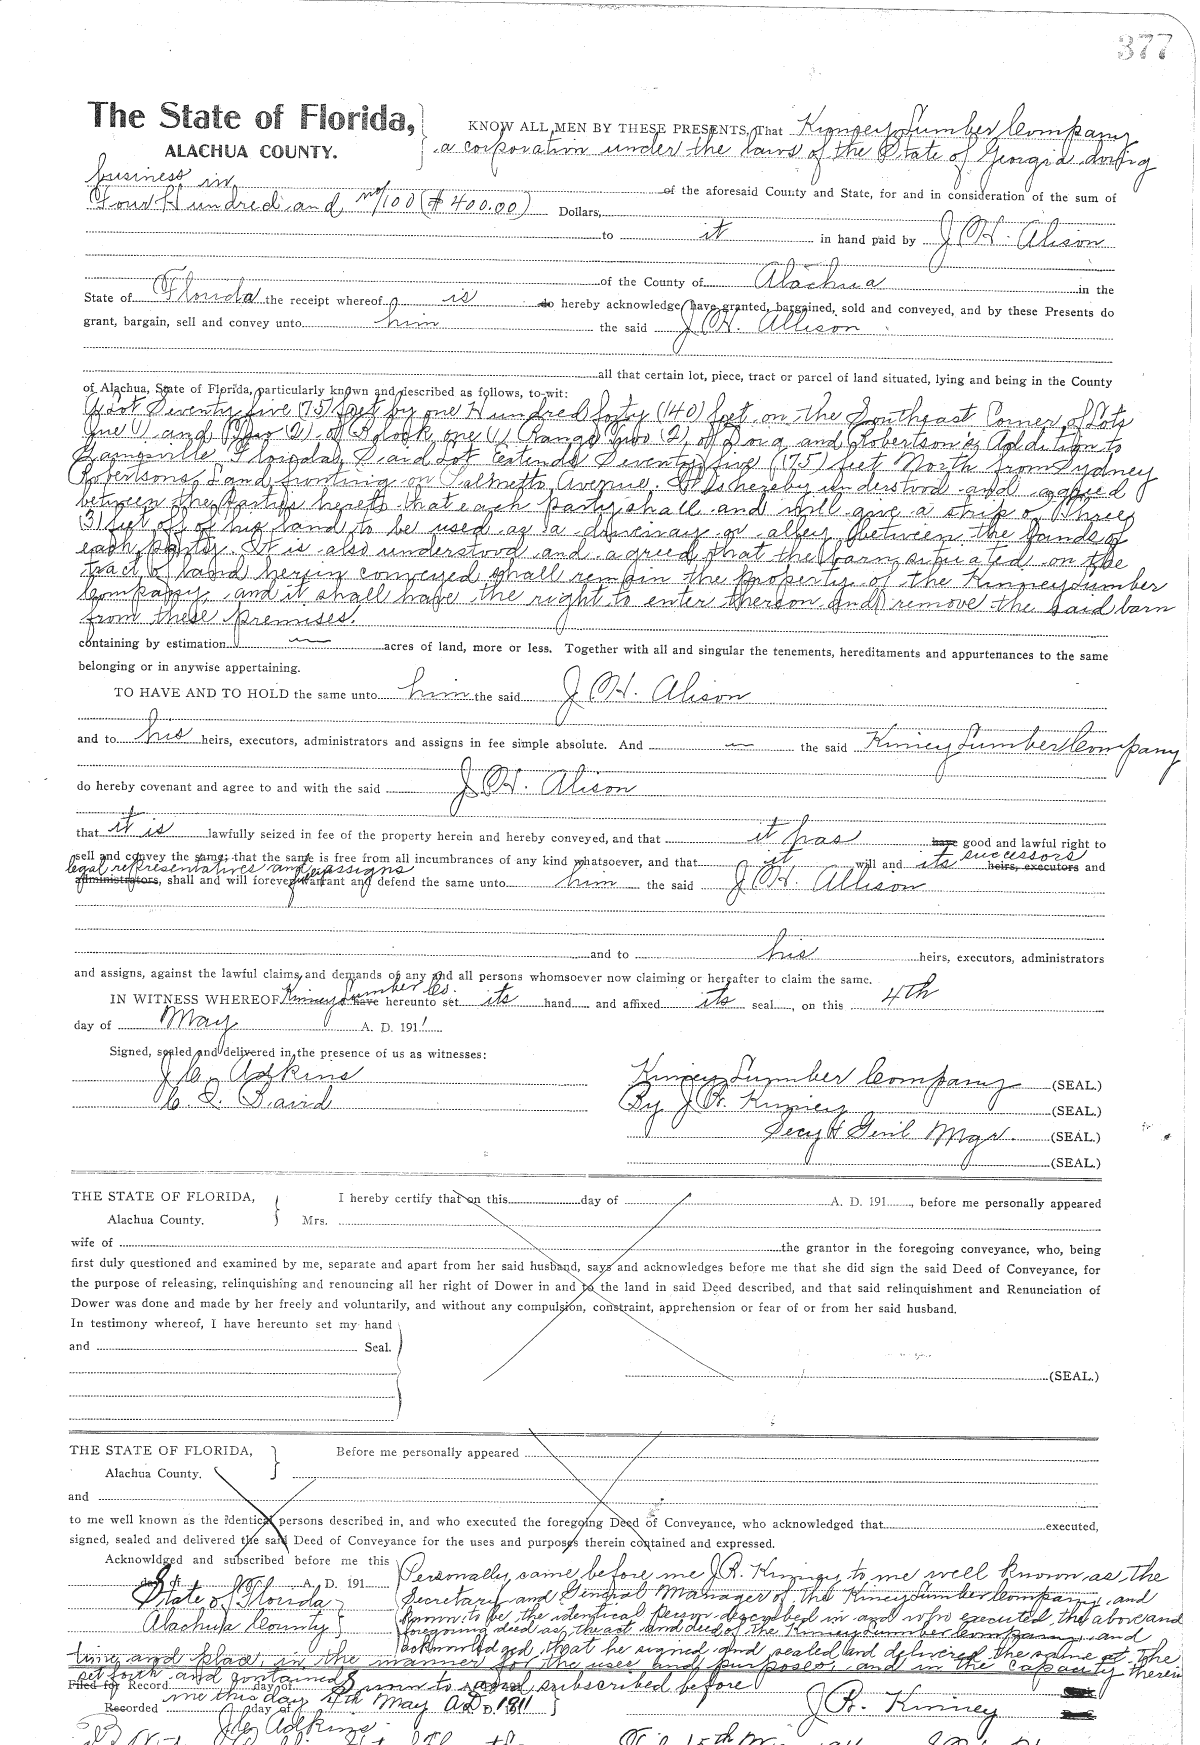 377
The State of Florida,
ALACHUA COUNTY.
KNOW ALL MEN BY THESE PRESENTS, That Kinney Lumber Company
a corporation under the laws of the State of Georgia doing
business in of the aforesaid County and State, for and in consideration of the sum of
Four Hundred and no/100 ($400.00) Dollars,
to it in hand paid by J H. Alison
of the County of Alachua in the
State of Florida the receipt whereof is do hereby acknowledge, have granted, bargained, sold and conveyed, and by these Presents do
grant, bargain, sell and convey unto him the said J H. Allison
all that certain lot, piece, tract or parcel of land situated, lying and being in the County
of Alachua, State of Florida, particularly known and described as follows, to-wit:
A Lot Seventy five (75) feet by one Hundred forty (140) feet on the Southeast Corner of Lots
One (1) and Two (2), of Block one (1) Range Two (2), of Doig and Robertson's Addition to
Gainesville Florida, Said Lot Extends Seventy five (75) feet North from Sydney
Robertsons Land fronting on Palmetto Avenue. It is hereby understood and agreed
between the Parties hereto that each party shall and will give a strip of Three
(3) feet off of his land to be used as a driveway or alley between the lands of
each party. It is also understood and agreed that the barn situated on the
tract of land herein conveyed shall remain the property of the Kinney Lumber
Company, and it shall have the right to enter thereon and remove the said barn
from these premises.
containing by estimation acres of land, more or less. Together with all and singular the tenements, hereditaments and appurtenances to the same
belonging or in anywise appertaining.
TO HAVE AND TO HOLD the same unto him the said J H. Alison
and to his heirs, executors, administrators and assigns in fee simple absolute. And the said Kinney Lumber Company
do hereby covenant and agree to and with the said J H. Alison
that it is lawfully seized in fee of the property herein and hereby conveyed, and that it has have good and lawful right to
sell and convey the same; that the same is free from all incumbrances of any kind whatsoever, and that it will and its successors heirs, executors and
legal representatives and assigns
administrators, shall and will forever warrant and defend the same unto him the said J H. Allison
and to his heirs, executors, administrators
and assigns, against the lawful claims and demands of any and all persons whomsoever now claiming or hereafter to claim the same.
IN WITNESS WHEREOF Kinney Lumber Co. have hereunto set its hand and affixed its seal, on this 4th
day of May A. D. 1911
Signed, sealed and delivered in the presence of us as witnesses:
J. C. Adkins
Kinney Lumber Company (SEAL.)
By J R. Kinney (SEAL.)
Secy & Genl Mgr. (SEAL.)
(SEAL.)
THE STATE OF FLORIDA,
Alachua County.
I hereby certify that on this day of A. D. 191 , before me personally appeared
Mrs.
wife of the grantor in the foregoing conveyance, who, being
first duly questioned and examined by me, separate and apart from her said husband, says and acknowledges before me that she did sign the said Deed of Conveyance, for
the purpose of releasing, relinquishing and renouncing all her right of Dower in and to the land in said Deed described, and that said relinquishment and Renunciation of
Dower was done and made by her freely and voluntarily, and without any compulsion, constraint, apprehension or fear of or from her said husband.
In testimony whereof, I have hereunto set my hand
and Seal.
(SEAL.)
THE STATE OF FLORIDA,
Alachua County.
Before me personally appeared
and
to me well known as the identical persons described in, and who executed the foregoing Deed of Conveyance, who acknowledged that executed,
signed, sealed and delivered the said Deed of Conveyance for the uses and purposes therein contained and expressed.
Acknowldged and subscribed before me this
day of A. D. 191
State of Florida
Alachua County
Personally came before me J R. Kinney to me well known as the
Secretary and General Manager of the Kinney Lumber Company, and
known to be the identical person described in and who executed the above and
foregoing deed as the act and deed of the Kinney Lumber Company, and
acknowledged that he signed and sealed and delivered the same at the
time and place, in the manner for the uses and purposes, and in the capacity therein
set forth and contained Sworn to and subscribed before
Filed for Record day of
me this day 4th May A.D. 1911
Recorded day of
J R. Kinney
J C. Adkins